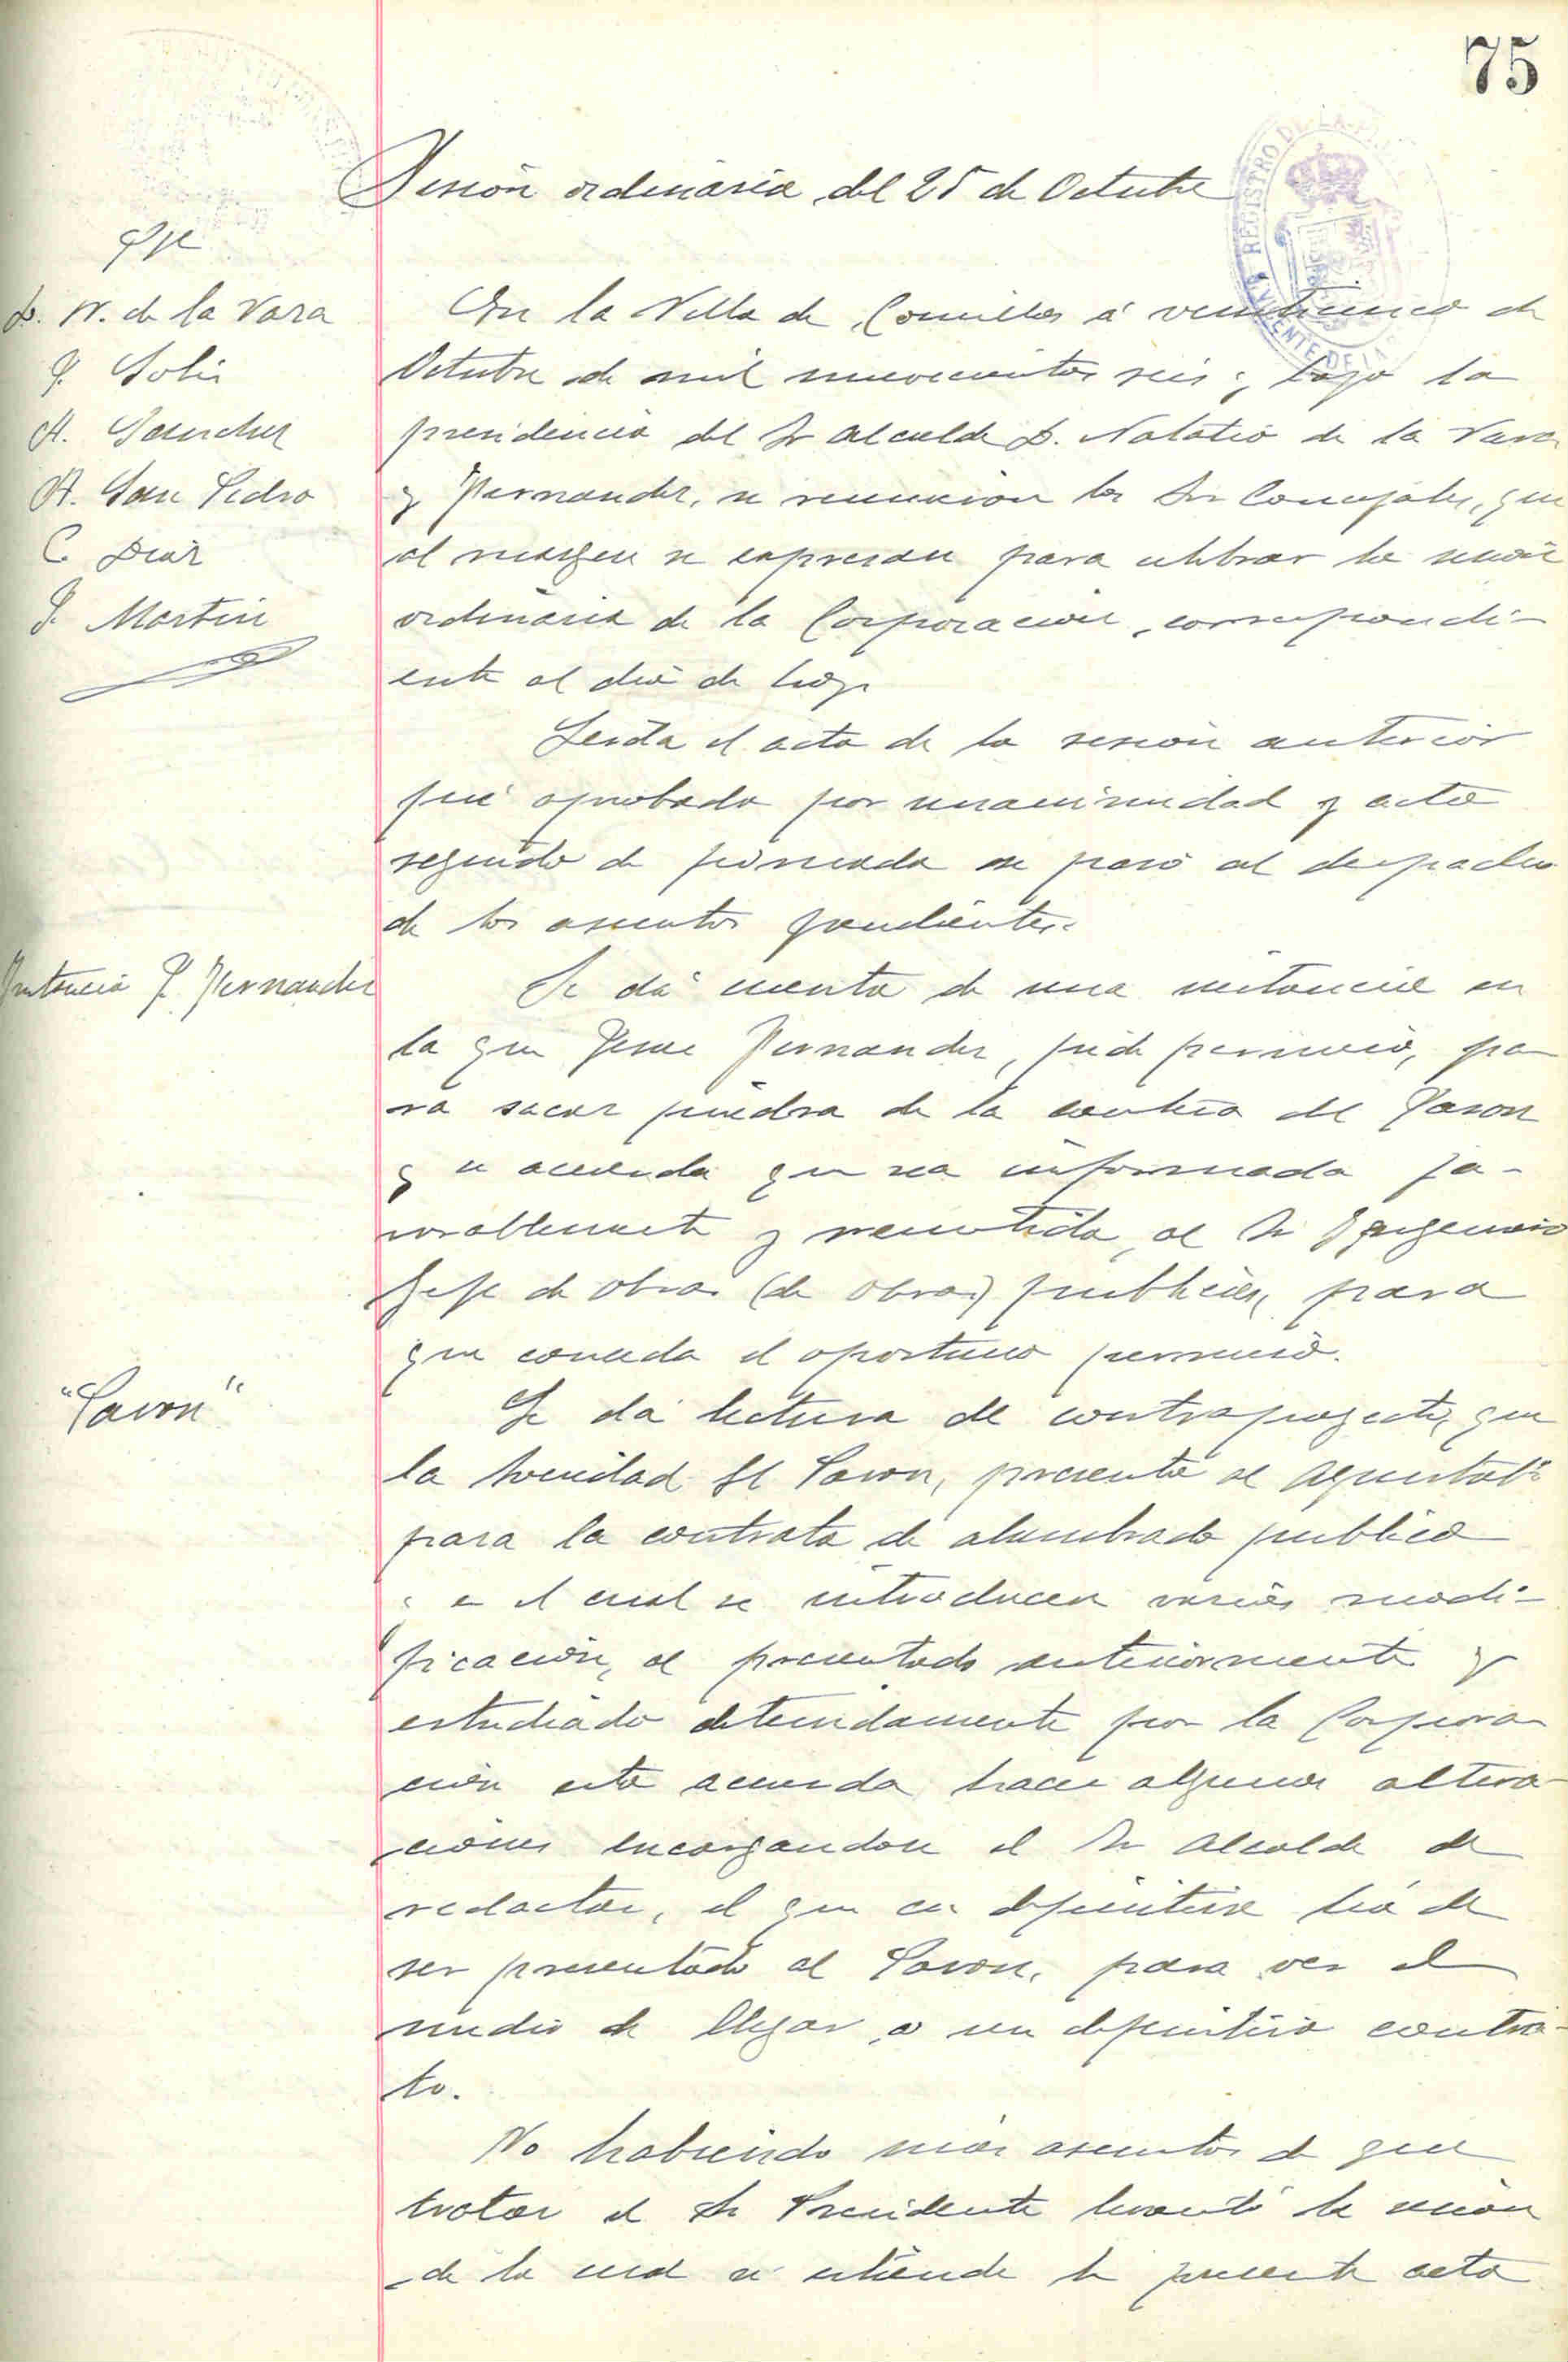 75
Sesión ordinaria del 25 de Octubre
D. N. de la Vara
J. Solis
A. Sanchez
A. San Pedro
C. Diaz
J. Martin
En la Villa de Comillas á veinticinco de
Octubre de mil novecientos seis, bajo la
presidencia del Sr Alcalde D. Natalio de la Vara
y Fernandez, se reunieron los Srs Concejales, que
al margen se expresan para celebrar la sesión
ordinaria de la Corporacion, correspondi-
ente al dia de hoy.
Leida el acta de la sesión anterior
fué aprobada por unanimidad y acto
seguido de firmada se pasó al despacho
de los asuntos pendientes.
Instancia J. Fernandez
Se dá cuenta de una instancia en
la que Jesus Fernandez, pide permiso, pa
ra sacar piedra de la cantera del
y se acuerda que sea informada fa-
vorablemente y remitida, al Sr Yngeniero
Jefe de obras (de obras) publicas, para
que conceda el oportuno permiso.
"Savon"
Se dá lectura del contraproyecto, que
la Sociedad El Savon, presenta al Ayuntatº
para la contrata de alumbrado publico
en el cual se introducen varias modi-
ficacion, al presentado anteriormente y
estudiado detenidamente por la Corpora
ción esta acuerda hacer algunas altera-
ciones encargandose el Sr Alcalde de
redactar, el que en definitiva há de
ser presentado al Savon, para ver el
medio de llegar a un definitivo contra-
to.
No habiendo más asuntos de que
tratar el Sr Presidente levantó la sesión
de la cual se extiende la presente acta
REGISTRO DE LA